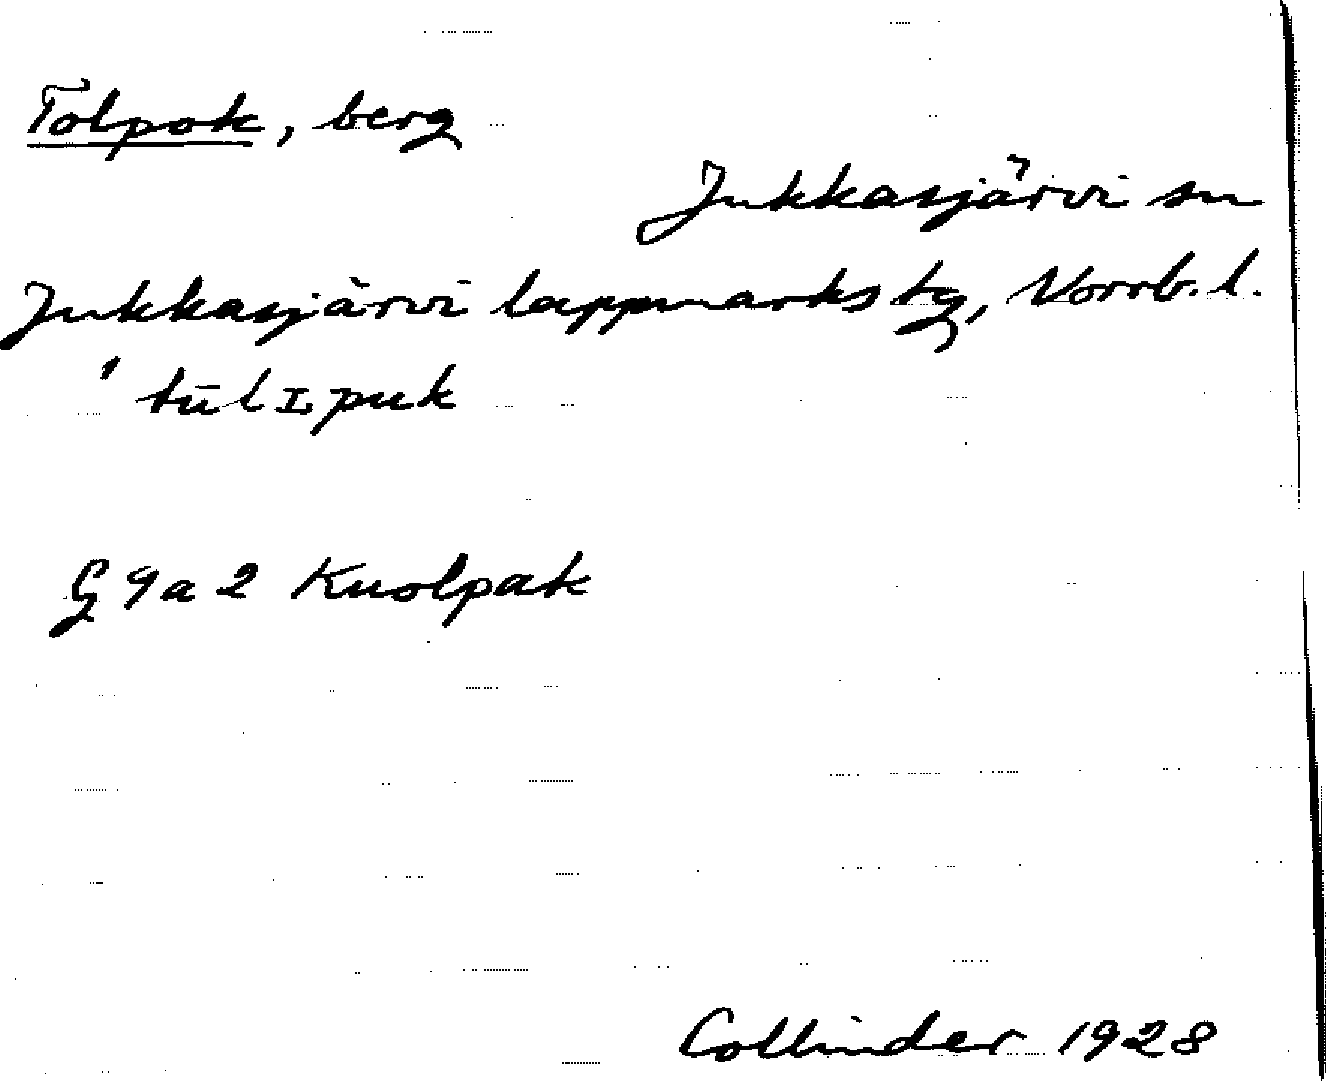 Tolpok, berg
Jukkasjärvi sn
Jukkasjärvi lappmarks tg, Norrb. l.
ˈtūlɪpuk
G 9a 2 Kuolpak
Collinder 1928